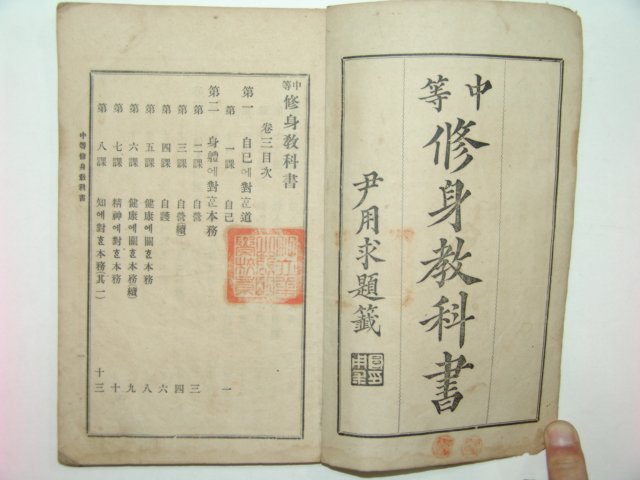 中等
修身教科書
尹用求題籤
中等修身教科書
卷三目次
第一 自己에對ᄒᆞᆫ道
第一課 自己 一
第二 身體에對ᄒᆞᆫ本務
第二課 自營 三
第三課 自營續 四
第四課 自護 六
第五課 健康에關ᄒᆞᆫ本務 八
第六課 健康에關ᄒᆞᆫ本務(續) 九
第七課 精神에對ᄒᆞᆫ本務 十
第八課 知에對ᄒᆞᆫ本務(其一) 十三
中等修身教科書